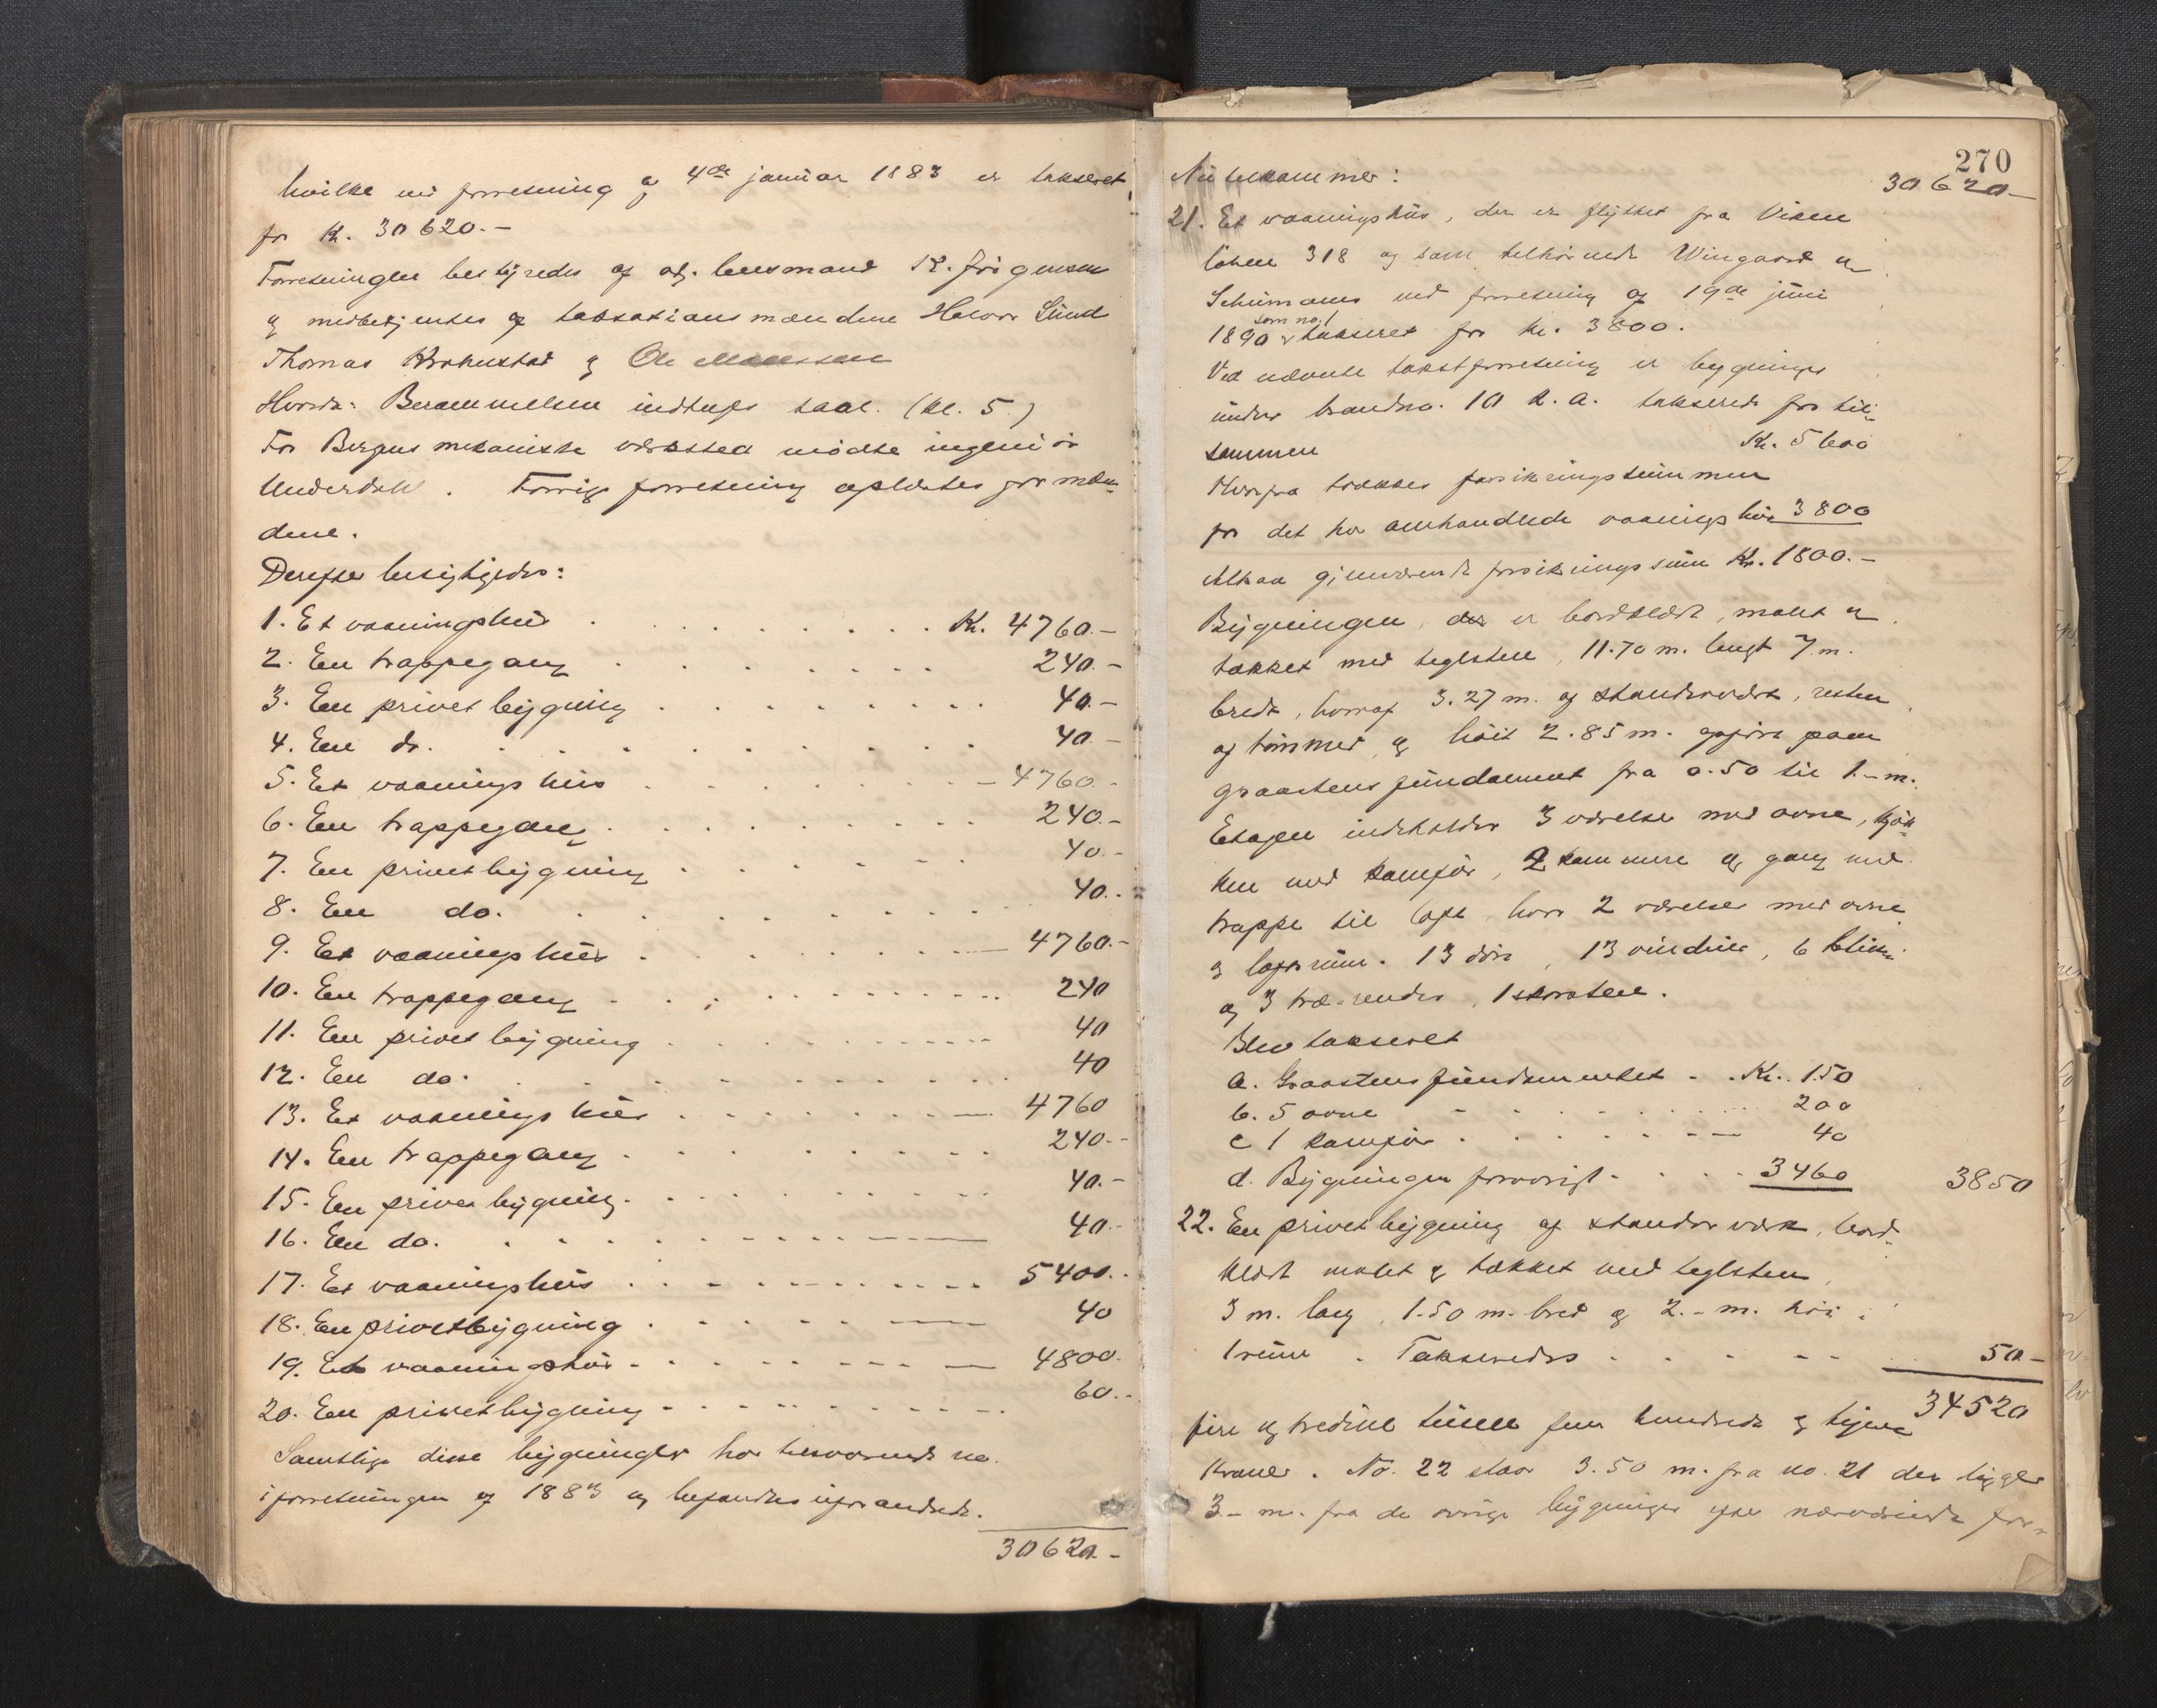 hvilke ved forretning af 4de januar 1883 er takseret
for Kr. 30620.-
Forretningen bestyredes af adj. lensmand K. Jørgensen
og medbetjentes af taksationsmændene Halvor Lund
Thomas Krohnstad og Ole Monssen
Hvorda: Berammelsen indtages saal. (kl. 5.)
For Bergens mekaniske værksted mødte ingeniør
Underdahl. Forrige forretning oplæstes for mæn-
dene.
Derefter besigtigedes:
1. Et vaaningshus . . . . . Kr. 4760.-
2. En trappegang . . . . . 240.-
3. En privetbygning . . . . . 40.-
4. En do. . . . . . 40.-
5. Et vaaningshus . . . . . 4760.-
6. En trappegang . . . . . 240.-
7. En privetbygning . . . . . 40.-
8. En do. . . . . . 40.-
9. Et vaaningshus . . . . . 4760.-
10. En trappegang . . . . . 240
11. En privetbygning . . . . . 40
12. En do. . . . . . 40
13. Et vaaningshus . . . . . 4760
14. En trappegang . . . . . 240.-
15. En privetbygning . . . . . 40.-
16. En do. . . . . . 40.-
17. Et vaaningshus . . . . . 5400.-
18. En privetbygning . . . . . 40
19. Et vaaningshus . . . . . 4800.
20. En privetbygning . . . . . 60.-
Samtlige disse bygninger har tilsvarende no.
i forretningen af 1883 og befandtes uforandrede.
30620.-
270
Nu tilkommer: 30620-
21. Et vaaningshus, der er flyttet fra Viken
løbene 318 og som tilhørende Wingaard &
Schumanns ved forretning af 19de juni
1890 som no. 1 er takseret for kr. 3800.
Ved nævnte takstforretning er bygninger
under brandno. 10 k. a. takserede for til-
sammen Kr. 5600
Hvorfra trækkes forsikringssummen
for det her omhandlede vaaningshus 3800
Altsaa gjenværende forsikringssum Kr. 1800.-
Bygningen, der er bordklædt, malet &
tækket med teglsten, 11.70 m. langt 7 m.
bredt, hvoraf 3.27 m. af standerværk, resten
af tømmer, og høit 2.85 m. opført paa
graastensfundament fra 0.50 til 1.- m.
Etagen indeholder 3 værelser med ovne, kjøk-
ken med komfur, 2 kammere og gang med
trappe til loft, hvor 2 værelser med ovne
og loftsrum. 13 døre, 13 vinduer, 6 blik-
og 3 træ-render, 1 skorsten.
Blev takseret
a. Graastensfundamentet . . Kr. 150
b. 5 ovne . . . . . 200
c 1 komfur . . . . . 40
d. Bygningen forøvrigt . . . 3460 3850
22. En privetbygning af standerværk, bord-
klædt malet & tækket med teglsten,
3 m. lang, 1.50 m. bred og 2.- m. høi:
1 rum. Takseredes . . . . . 50.-
34520
fire og tredive tusen fem hundrede og tyve
kroner. No. 22 staar 3.50 m. fra no. 21 der ligger
3.- m. fra de øvrige bygninger efter nærværende for-